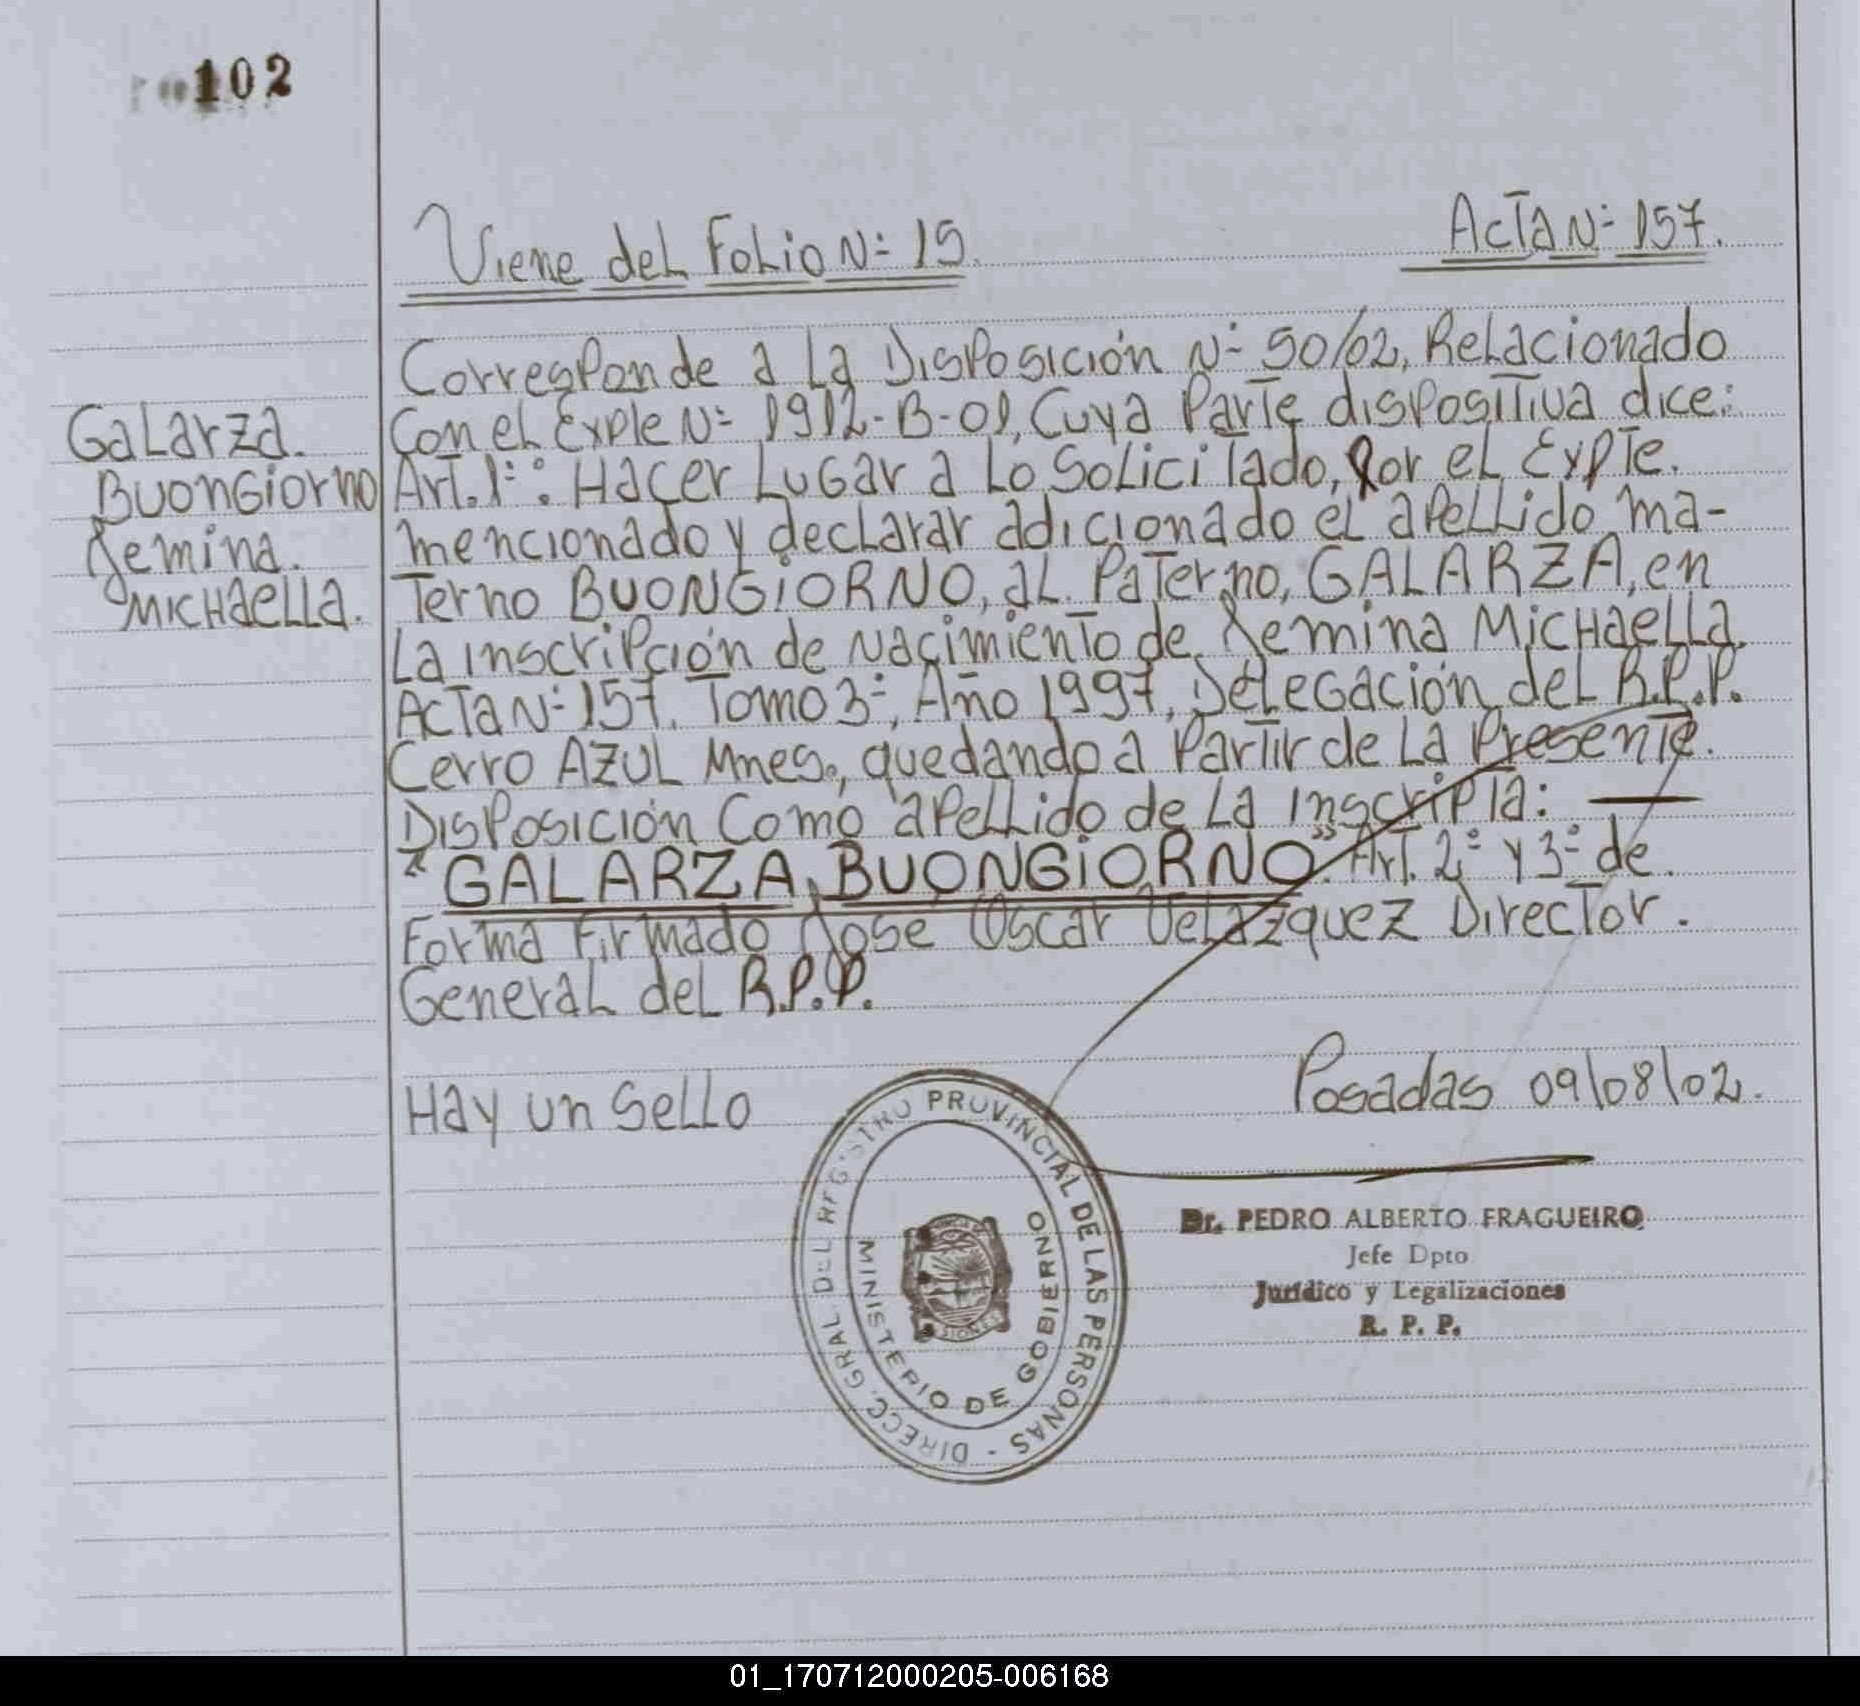 102
Viene del Folio N= 15.
Acta N= 157.
Galarza.
Buongiorno
Jemina.
Michaella.
Corresponde a la Disposición N= 50/02, Relacionado
Con el Expte N= 1912-B-01, Cuya Parte dispositiva dice:
Art. 1=: Hacer Lugar a Lo Solicitado, Por el Expte.
mencionado y declarar adicionado el apellido ma-
terno BUONGiORNO, al Paterno, GALARZA, en
La inscripción de Nacimiento de Jemina Michaella
Acta N= 157. Tomo 3=, Año 1997, Delegación del R.P.P.
Cerro Azul Mnes., quedando a Partir de La Presente.
Disposición Como apellido de La Inscripta: —
"GALARZA, BUONGiORNO". Art. 2= y 3= de.
Forma Firmado Jose Oscar Velazquez Director.
General del R.P.P.
Hay un Sello
Posadas 09/08/02.
DIRECC. GRAL. DEL REGISTRO PROVINCIAL DE LAS PERSONAS -
MINISTERIO DE GOBIERNO
Dr. PEDRO ALBERTO FRAGUEIRO
Jefe Dpto
Jurídico y Legalizaciones
R. P. P.
01_170712000205-006168